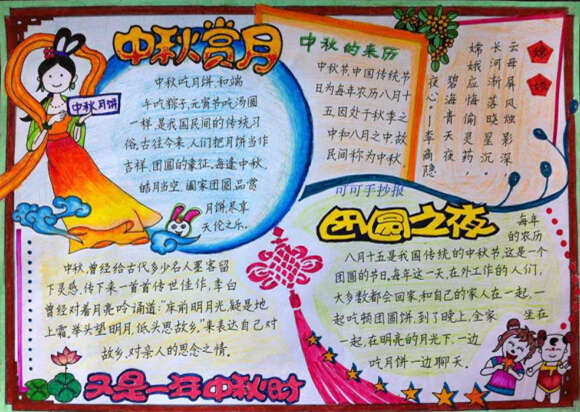 中秋赏月
中秋月饼
中秋吃月饼,和端
午吃粽子,元宵节吃汤圆
一样,是我国民间的传统习
俗,古往今来,人们把月饼当作
吉祥、团圆的象征,每逢中秋
皓月当空,阖家团圆,品赏
月饼,尽享
天伦之乐。
中秋的来历
中秋节,中国传统节
日为每年农历八月十
五,因处于秋季之
中和八月之中,故
民间称为中秋
嫦娥
云母屏风烛影深,
长河渐落晓星沉。
嫦娥应悔偷灵药,
碧海青天
夜夜心。——李商隐
可可手抄报
团圆之夜
每年
的农历
八月十五是我国传统的中秋节,这是一个
团圆的节日,每年这一天,在外工作的人们,
大多数都会回家,和自己的家人在一起,一
起吃顿团圆饼,到了晚上,全家坐在
一起,在明亮的月光下,一边
吃月饼一边聊天。
中秋,曾经给古代多少名人墨客留
下灵感,传下来一首首传世佳作,李白
曾经对着月亮吟诵道:“床前明月光,疑是地
上霜,举头望明月,低头思故乡。”来表达自己对
故乡、对亲人的思念之情。
又是一年中秋时